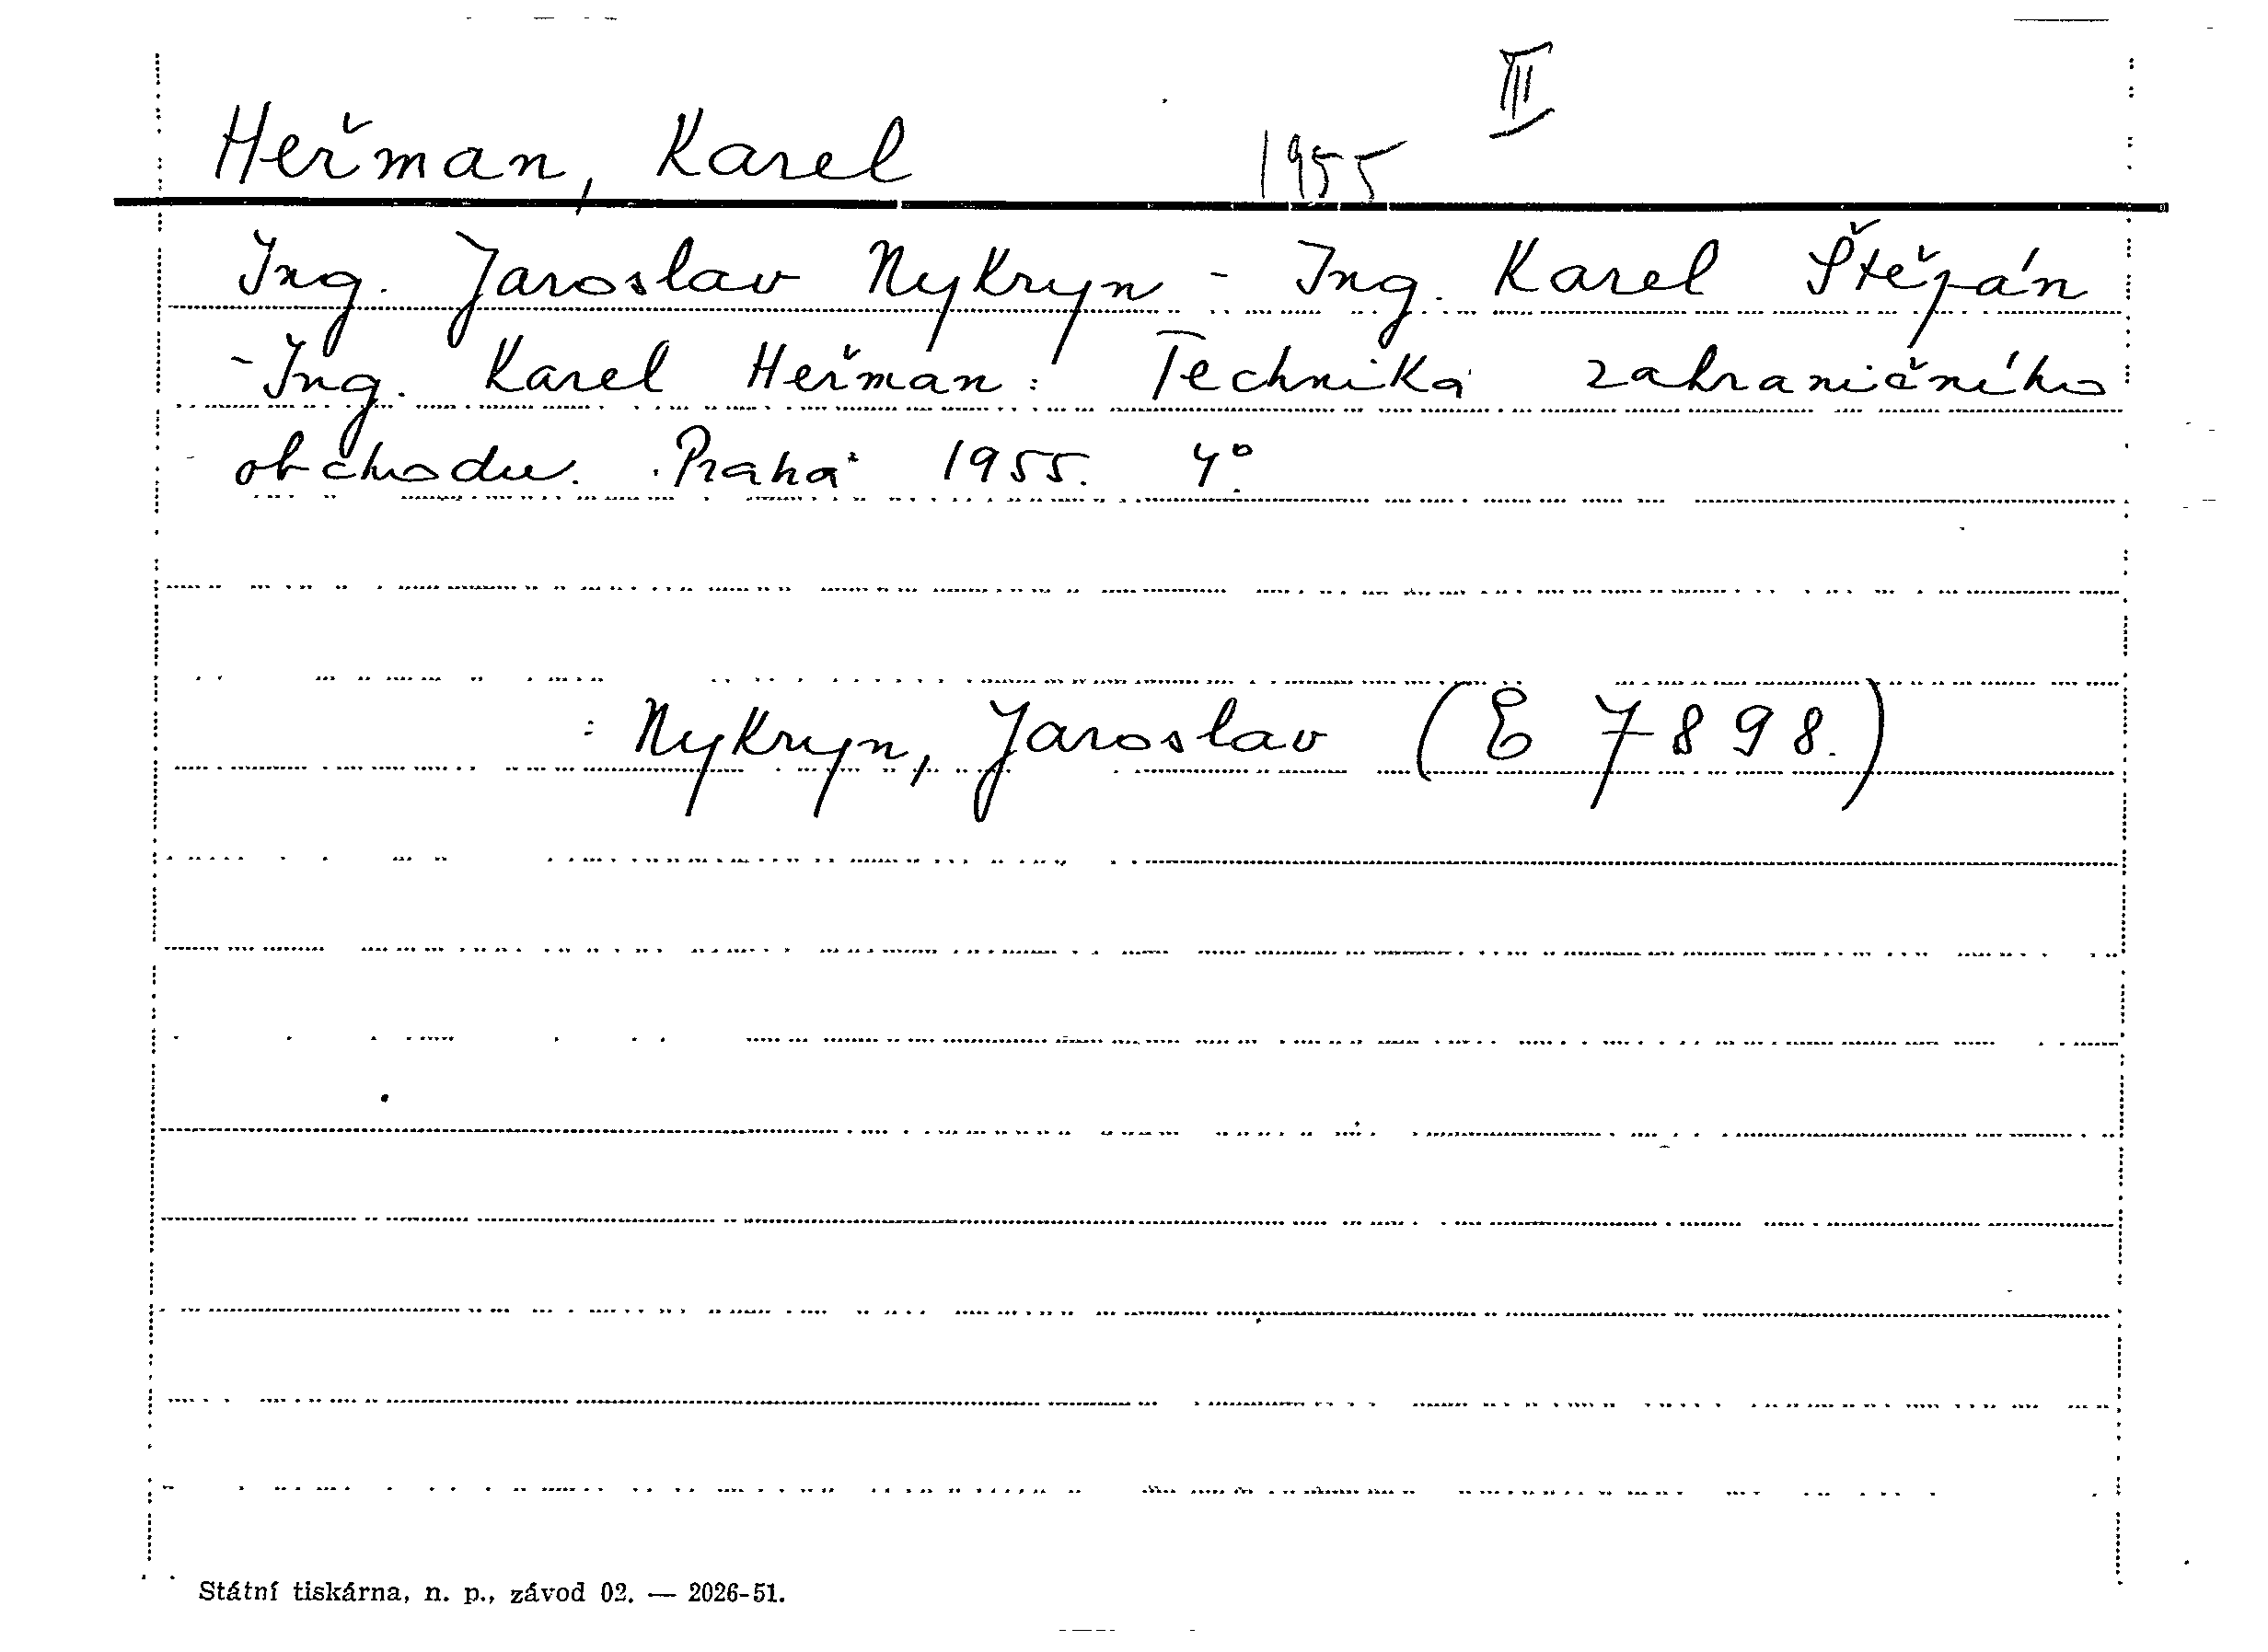 III
Heřman, Karel 1955
Ing. Jaroslav Nykryn - Ing. Karel Štěpán
- Ing. Karel Heřman: Technika zahraničního
obchodu. Praha 1955. 4°.
: Nykryn, Jaroslav (E 7898.)
Státní tiskárna, n. p., závod 02. — 2026-51.